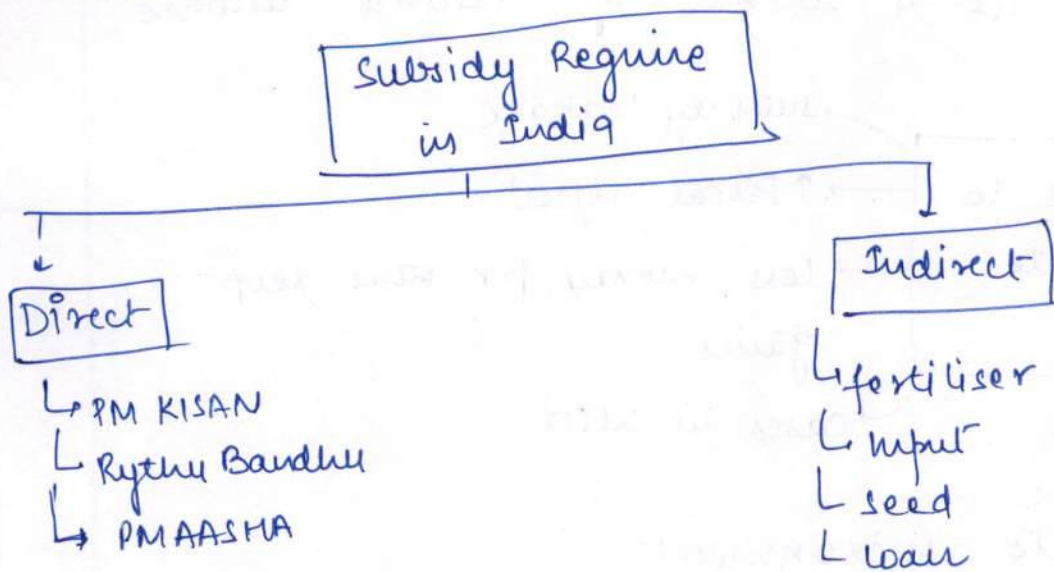 Subsidy Require
in India
Direct
PM KISAN
Rythu Bandhu
PMAASHA
Indirect
fertiliser
Input
seed
loan